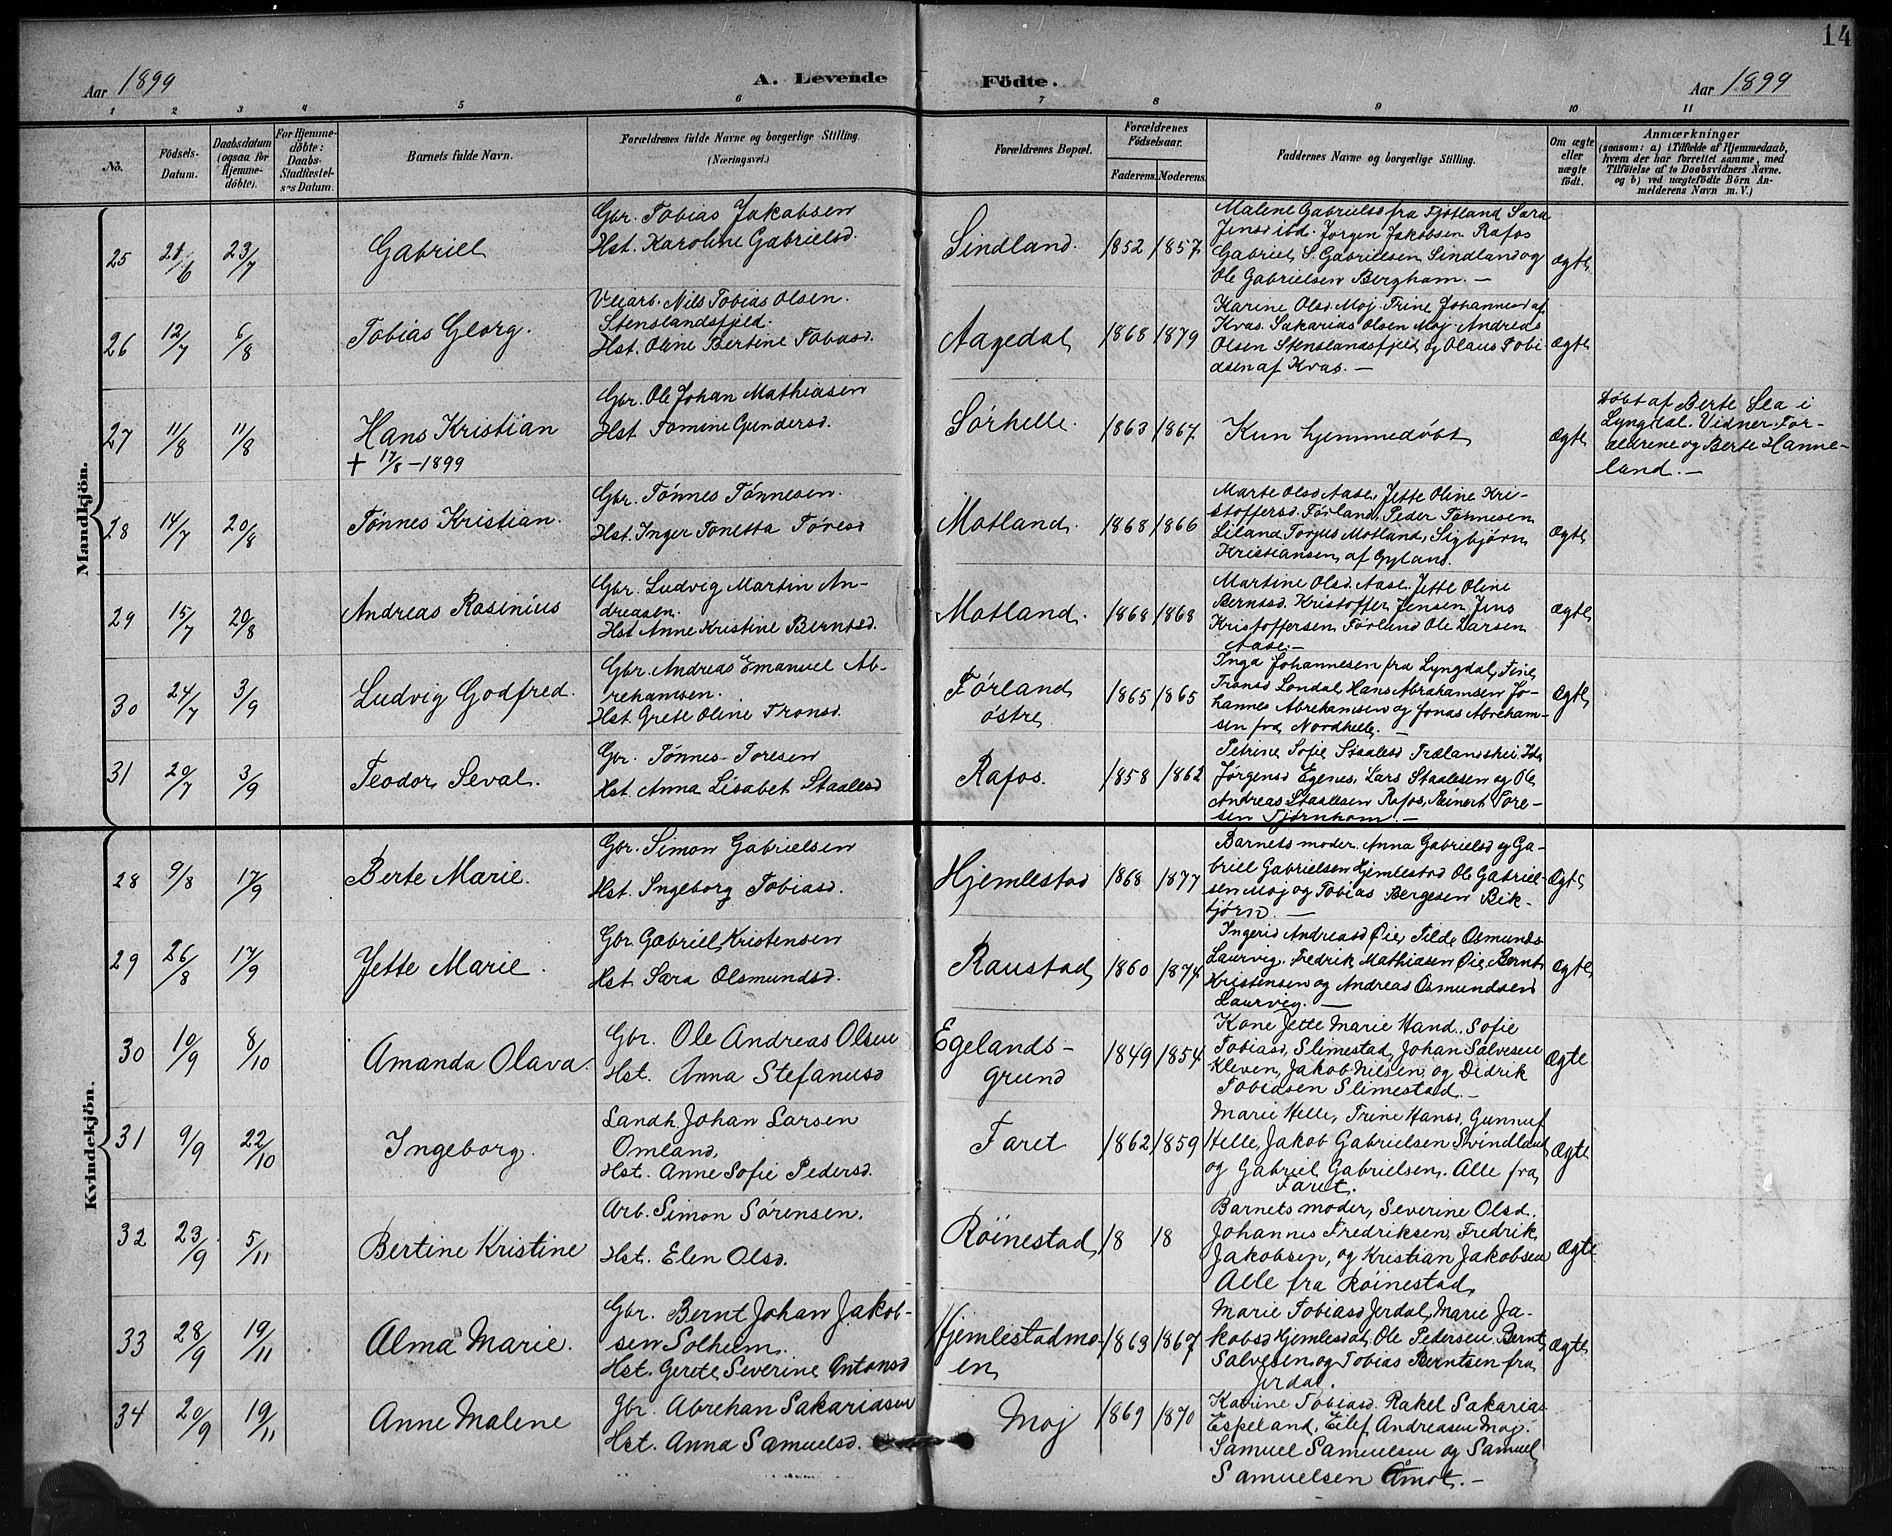 14
Aar 1899
A. Levende Födte.
Aar 1899
1 2 3 4 5 6 7 8 9 10 11
No.
Födsels-
Datum.
Daabsdatum
(ogsaa for
Hjemme-
döbte).
For Hjemme-
döbte:
Daabs-
Stadfæstel-
ses Datum.
Barnets fulde Navn.
Forældrenes fulde Navne og borgerlige Stilling.
(Næringsvei.)
Forældrenes Bopæl.
Forældrenes
Födselsaar.
Faderens. Moderens.
Faddernes Navne og borgerlige Stilling.
Om ægte
eller
uægte
födt.
Anmærkninger
(saasom: a) i Tilfælde af Hjemmedaab,
hvem der har forrettet samme, med
Tilföielse af to Daabsvidners Navne,
og b) ved uægtefödte Börn An-
melderens Navn m. V.)
Mandkjön.
25
21/6
23/7
Gabriel
Gbr. Tobias Jakobsen
Hst. Karoline Gabrielsd.
Sindland.
1852
1857
Malene Gabrielsd fra Fjotland Sara
Jensd ibd. Jørgen Jakobsen Rafos
Gabriel S. Gabrielsen Sindland og
Ole Gabrielsen Bergham. —
ægte
26
12/7
6/8
Tobias Georg.
Veiarb. Nils Tobias Olsen.
Stenslandsfjeld.
Hst. Oline Bertine Tobiasd.
Aagedal
1868
1879
Karine Olsd. Moj. Trine Johannesd af
Kvas. Sakarias Olsen Moj. Andreas
Olsen Stenslandsfjeld og Olaus Tobi-
asen af Kvas. —
ægte
27
11/8
11/8
Hans Kristian
+ 17/8 – 1899
Gbr. Ole Johan Mathiasen
Hst. Tomine Gundersd.
Sørhelle.
1863
1867
Kun hjemmedøbt
ægte
Døbt af Berte Lea i
Lyngdal. Vidner. For-
ældrene og Berte Hanne-
land. —
28
14/7
20/8
Tønnes Kristian.
Gbr. Tønnes Tønnesen.
Hst. Inger Tonetta Toresd
Motland.
1868
1866
Marte Olsd Aase, Jette Oline Kri-
stoffersd. Førland, Peder Tønnesen
Liland Torjus Motland, Sigbjørn
Kristiansen af Gyland.
ægte
29
15/7
20/8
Andreas Rasinius
Gbr. Ludvig Martin An-
dreasen.
Hst Anne Kristine Berntsd.
Motland.
1868
1868
Martine Olsd. Aase. Jette Oline
Berntsd. Kristoffer Jensen, Jens
Kristoffersen Førland Ole Larsen
Aase. —
ægte
30
24/7
3/9
Ludvig Godfred.
Gbr. Andreas Emanuel Ab-
rehamsen.
Hst. Grete Oline Tronsd.
Førland
østre
1865
1865
Inga Johannesen fra Lyngdal, Fine
Tronsd Londal, Hans Abrahamsen Jo-
hannes Abrehamsen og Jonas Abreham-
sen fra Nordhelle. —
ægte
31
20/7
3/9
Teodor Seval.
Gbr. Tønnes Toresen
Hst. Anna Lisabet Staalesd
Rafos.
1858
1862
Petrine Sofie Staalesd Trælandshei
Jørgensd Egenes, Lars Staalesen og Ole
Andreas Staalesen Rafos, Reinert Tore-
sen Tjørnhom. —
Kvindekjön.
28
9/8
17/9
Berte Marie.
Gbr. Simon Gabrielsen
Hst. Ingeborg Tobiasd.
Hjemlestad
1868
1877
Barnets moder. Anna Gabrielsd og Ga-
briel Gabrielsen Hjemlestad Ole Gabriel-
sen Moj og Tobias Bergesen Bik-
bjørn. —
Ægte
29
26/8
17/9
Jette Marie.
Gbr. Gabriel Kristensen
Hst. Sara Olsmundsd.
Raustad
1860
1874
Ingerid Andreasd Øie, Tilde Osmunds
Laurvig. Fredrik Mathiasen Øie, Bernt
Kristensen og Andreas Osmundsen
Laurvig. —
ægte
30
10/9
8/10
Amanda Olava.
Gbr. Ole Andreas Olsen
Hst. Anna Stefanusd
Egelands-
grund
1849
1854
Kone Jette Marie Hand. Sofie
Tobiasd, Slimestad, Johan Salvesen
Kleven, Jakob Nilsen, og Didrik
Tobiasen Slimestad. —
Ægte
31
9/9
22/10
Ingeborg.
Landh. Johan Larsen
Omland.
Hst. Anne Sofie Pedersd.
Faret
1862
1859
Marie Helle, Trine Hansd, Gunnuf
Helle, Jakob Gabrielsen Svindland
og Gabriel Gabrielsen. Alle fra
Faret.
Ægte
32
23/9
5/11
Bertine Kristine
Arb. Simon Sørensen.
Hst. Elen Olsd.
Røinestad
18
18
Barnets moder, Severine Olsd.
Johannes Fredriksen, Fredrik
Jakobsen, og Kristian Jakobsen
Alle fra Røinestad
ægte
33
28/9
19/11
Alma Marie.
Gbr. Bernt Johan Jakob-
sen Solheim.
Hst. Gerete Severine Antonsd
Hjemlestadmo-
en
1863
1867
Marie Tobiasd Jerdal, Marie Ja-
kobsd Hjemlesdat, Ole Pedersen. Bernt
Salvesen, og Tobias Berntsen fra
Jerdal.
Ægte
34
20/9
19/11
Anne Malene
Gbr. Abrehan Sakariasen
Hst. Anna Samuelsd.
Moj
1869
1870
Katrine Tobiasd. Rakel Sakarias
Espeland, Eilef Andreasen Moj.
Samuel Samuelsen og Samuel
Samuelsen Åmot. —